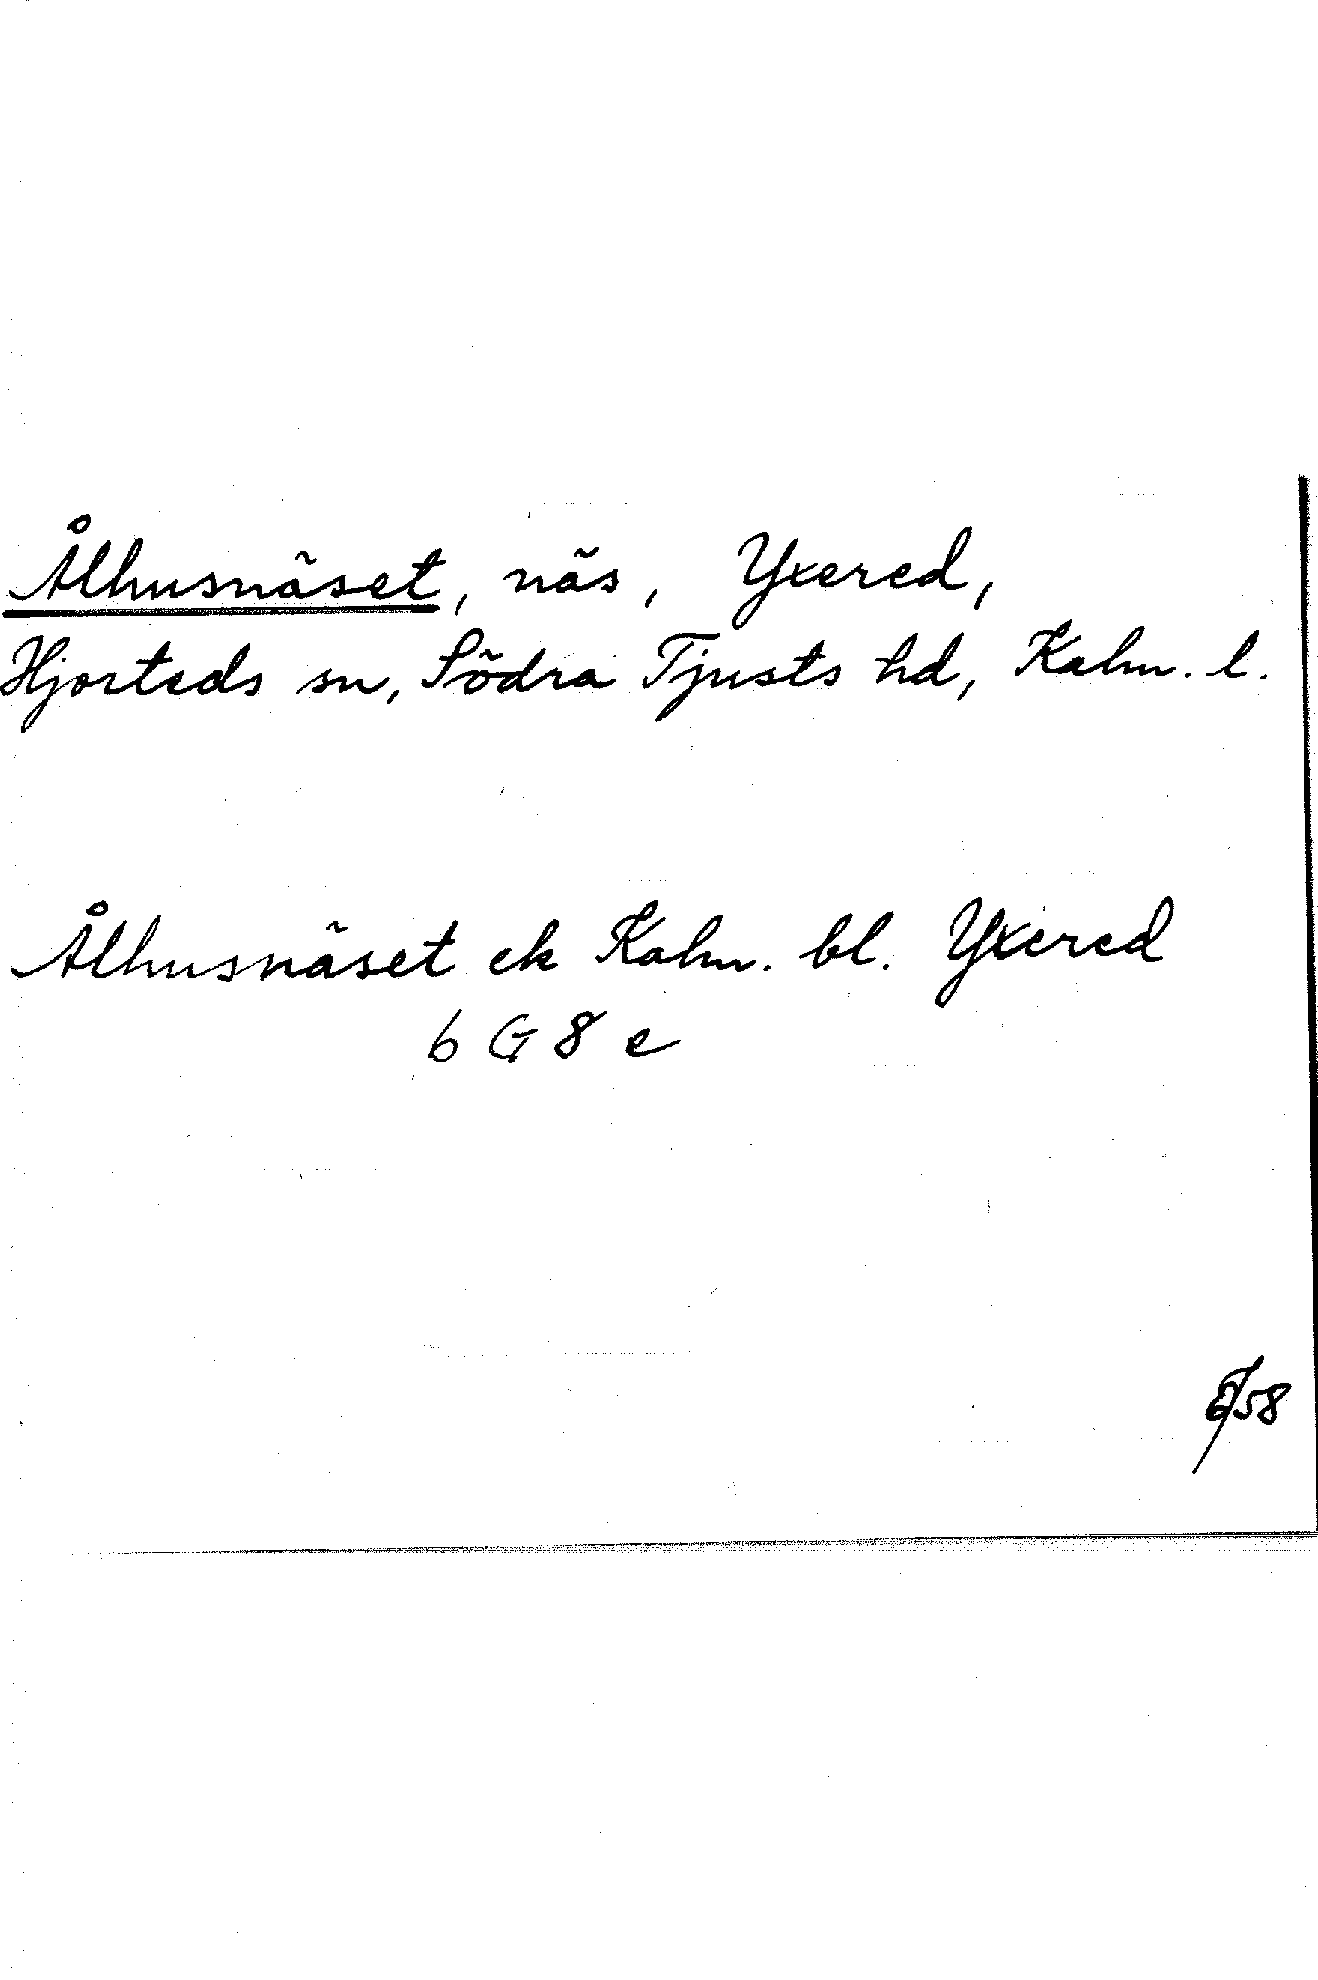 Ålhusnäset, näs, Yxered,
Hjorteds sn, Södra Tjusts hd, Kalm. l.
Ålhusnäset ek Kalm. bl. Yxered
6 G 8 e